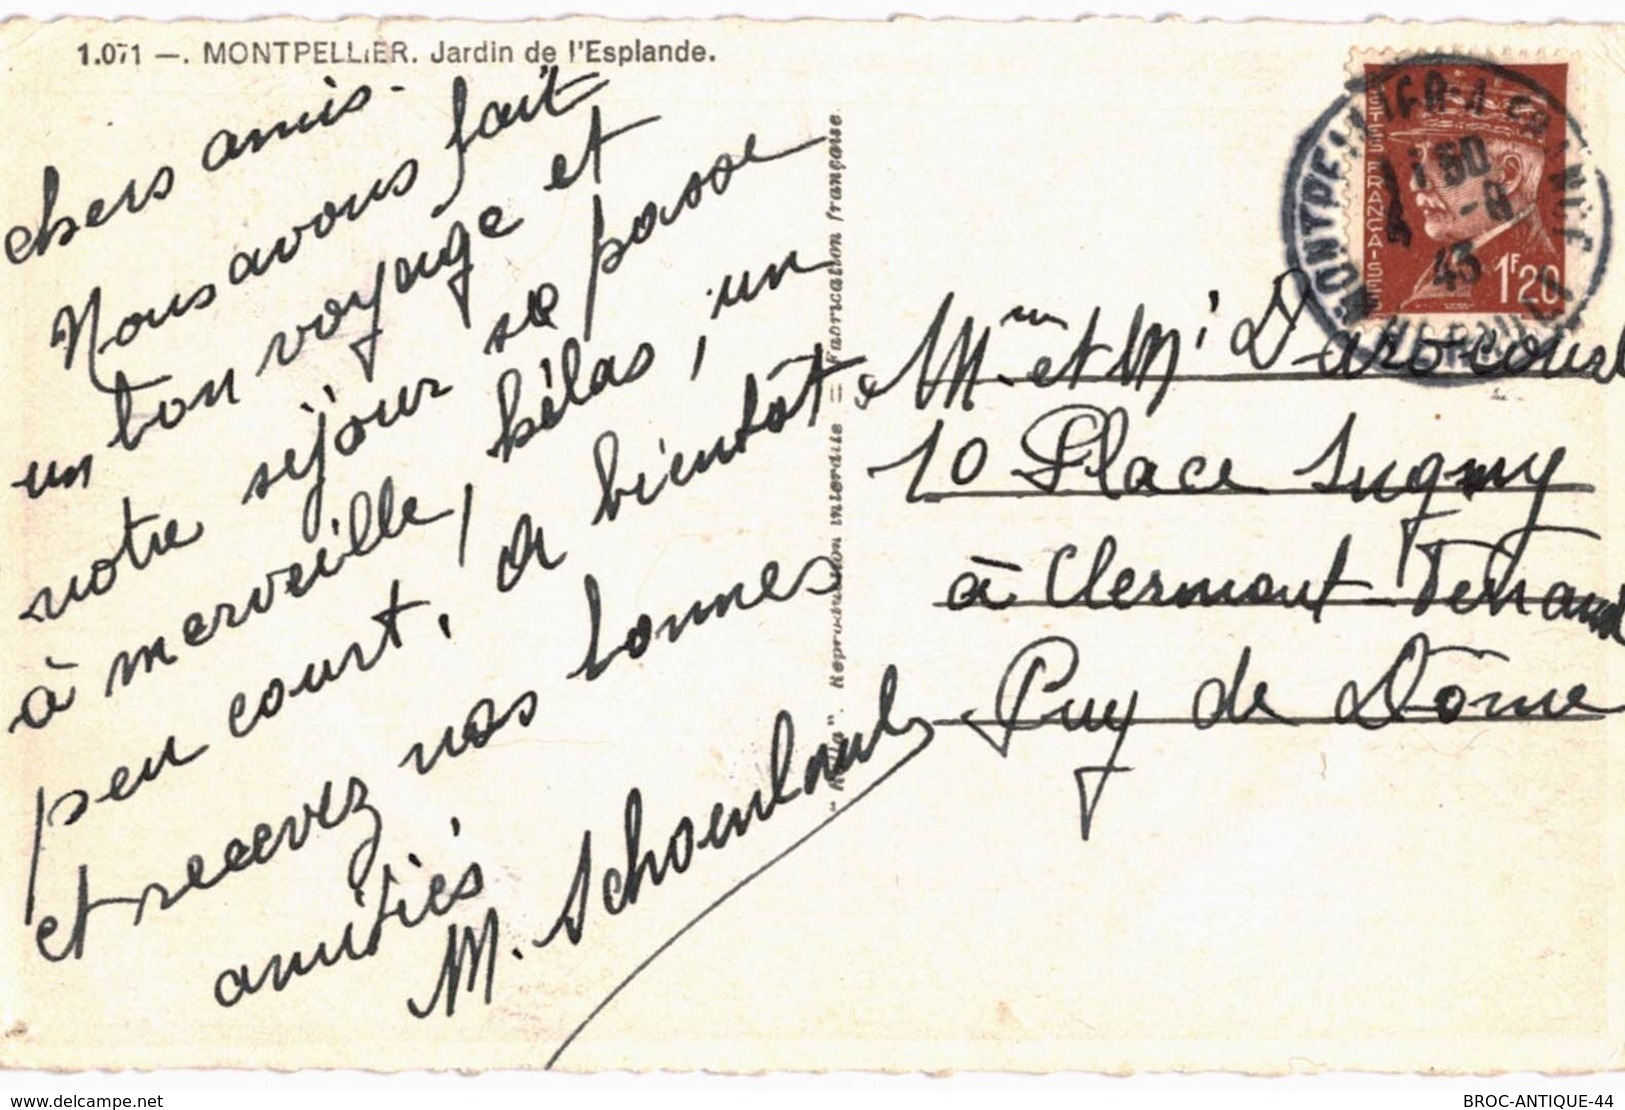 1.071 —. MONTPELLIER. Jardin de l'Esplande.
chers amis.
Nous avons fait
un bon voyage et
notre séjour se passe
à merveille, hélas, un
peu court, a bientôt
et recevez nos bonnes
amitiés
M. Schoenlaub
Reproduction interdite = Fabrication française.
POSTES FRANÇAISES
1F20
43
Mme et Mr
10 Place Sugny
à Clermont Ferrand
Puy de Dôme
www.delcampe.net
BROC-ANTIQUE-44